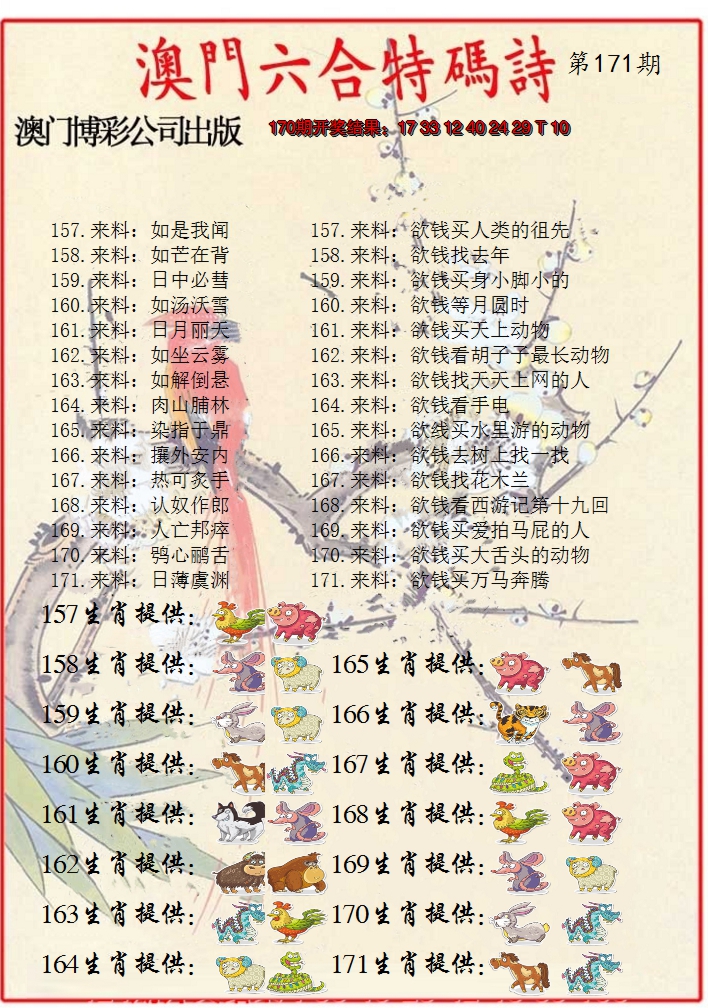 澳門六合特碼詩 第171期
澳门博彩公司出版 170期开奖结果：17 33 12 40 24 29 T 10
157.来料：如是我闻 157.来料：欲钱买人类的祖先
158.来料：如芒在背 158.来料：欲钱找去年
159.来料：日中必彗 159.来料：欲钱买身小脚小的
160.来料：如汤沃雪 160.来料：欲钱等月圆时
161.来料：日月丽天 161.来料：欲钱买天上动物
162.来料：如坐云雾 162.来料：欲钱看胡子予最长动物
163.来料：如解倒悬 163.来料：欲钱找天天上网的人
164.来料：肉山脯林 164.来料：欲钱看手电
165.来料：染指于鼎 165.来料：欲线买水里游的动物
166.来料：攘外安内 166.来料：欲钱去树上找一找
167.来料：热可炙手 167.来料：欲钱找花木兰
168.来料：认奴作郎 168.来料：欲钱看西游记第十九回
169.来料：人亡邦瘁 169.来料：欲钱买爱拍马屁的人
170.来料：鸮心鹂舌 170.来料：欲钱买大舌头的动物
171.来料：日薄虞渊 171.来料：欲钱买万马奔腾
157生肖提供：
158生肖提供： 165生肖提供：
159生肖提供： 166生肖提供：
160生肖提供： 167生肖提供：
161生肖提供： 168生肖提供：
162生肖提供： 169生肖提供：
163生肖提供： 170生肖提供：
164生肖提供： 171生肖提供：